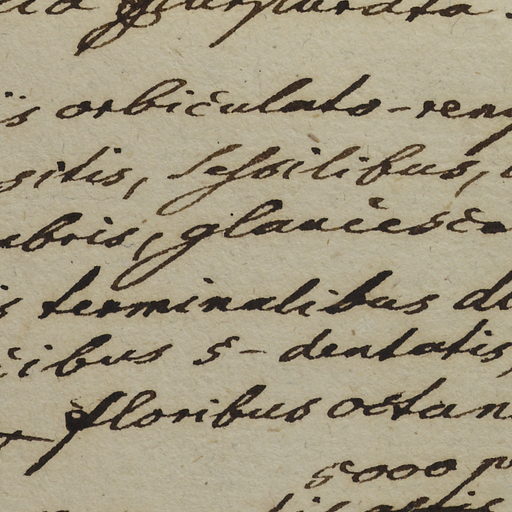 purpurata.
is orbiculato-reny
sitis, sessilibus,
abris, glaucesce
is terminalibus di
cibus 5-dentatis,
floribus octan
5000 p